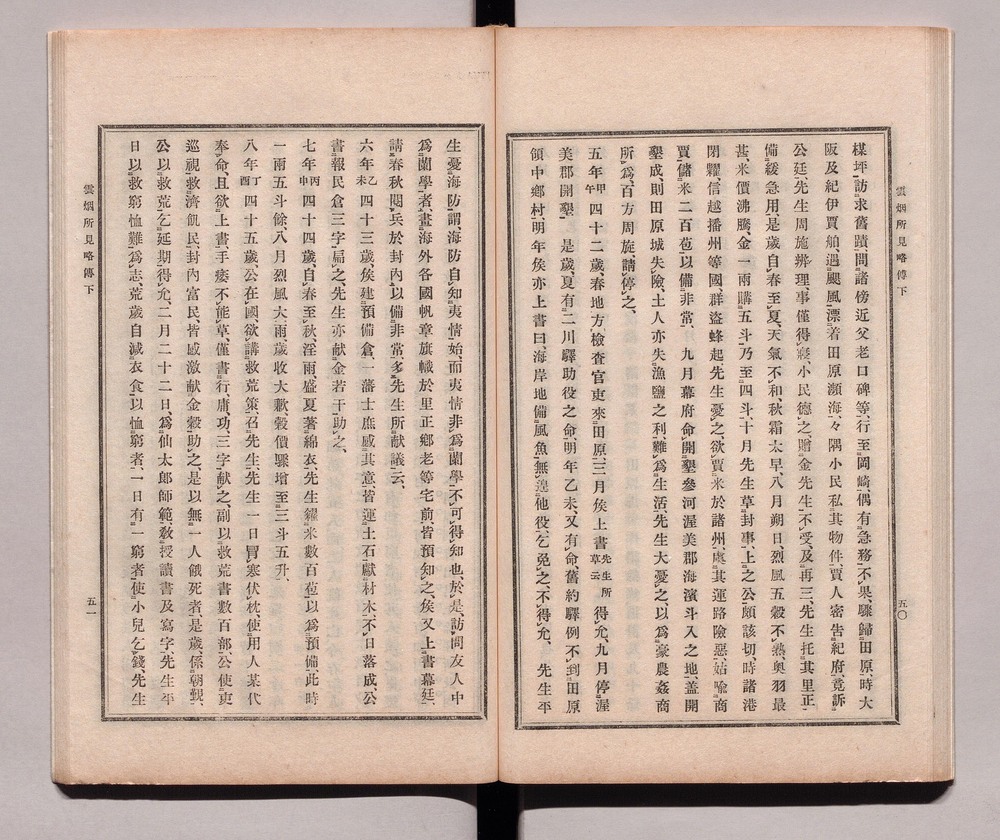 雲烟所見略傳下
五〇
楳坪、訪求舊蹟、問諸傍近父老口碑等、行至岡崎、偶有急務、不果、驟歸田原、時大
阪及紀伊賈舶、遇颶風、漂着田原瀕海、々隅小民私其物件、賈人密吿紀府、竟訴
公廷、先生周施辨理、事僅得寢、小民德之、贈金、先生不受、及再三、先生托其里正、
備緩急用、是歲自春至夏、天氣不和、秋霜太早、八月朔日烈風、五穀不熟、奧羽最
甚、米價沸騰、金一兩購五斗、乃至四斗、十月先生草封事、上之公、頗該切、時諸港
閉糶、信越播州等國、群盜蜂起、先生憂之、欲賈米於諸州、虞其運路險惡、姑喩商
賈、儲米二百苞、以備非常、 九月幕府命開墾參河渥美郡海濱斗入之地、蓋開
墾成、則田原城失險、土人亦失漁鹽之利、難爲生活、先生大憂之、以爲豪農姦商
所爲、百方周旋、請停之、
五年甲午四十二歲、春地方檢査官東來田原、三月俟上書先生所草云得允、九月停渥
美郡開墾、 是歲夏有二川驛助役之命、明年乙未、又有命、舊約驛例不到田原
領中鄉村、明年俟亦上書曰、海岸地備風魚、無遑他役、乞免之、不得允、 先生平
生憂海防、謂海防自知夷情始、而夷情非爲蘭學、不可得知也、於是訪問友人中
爲蘭學者、畫海外各國帆章旗幟於里正鄉老等宅前、皆預知之、俟又上書幕廷、
請春秋閱兵於封內、以備非常、多先生所献議云、
六年乙未四十三歲俟建預備倉、一藩士庶感其意、皆運土石獻材木、不日落成、公
書報民倉三字扁之、先生亦献金若干助之、
七年丙申四十四歲、自春至秋、淫雨、盛夏著綿衣、先生糴米數百苞、以爲預備、此時
一兩五斗餘、八月烈風大雨、歲收大歉、穀價驟增至三斗五升、
八年丁酉四十五歲、公在國、欲講救荒策、召先生、先生一日冐寒伏枕、使用人某代
奉命、且欲上書、手痿不能草、僅書行庸功三字献之、副以救荒書數百部、公使吏
巡視、救濟飢民、封內富民、皆感激献金穀助之、是以無一人餓死者、是歲係朝覲、
公以救荒、乞延期得允、二月二十二日、爲仙太郎師範、敎授讀書及寫字、先生平
日以救窮恤難爲志、荒歲自減衣食、以恤窮者、一日有一窮者、使小兒乞錢、先生
雲烟所見略傳下
五一